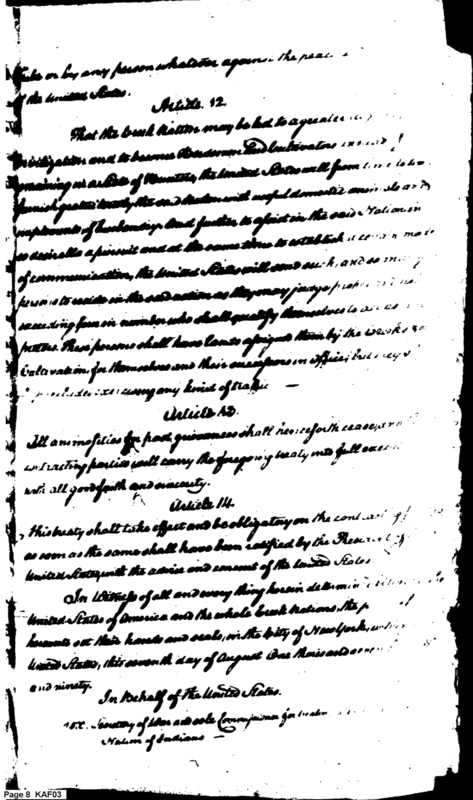 tribe or by any person whatever against the peace
of the United States.
Article 12.
That the Creek Nation may be led to a greater
civilization and to become Herdsmen and Cultivators instead of
remaining in a State of Hunters, the United States will from time to time
furnish gratuitously the said Nation with useful domestic animals and
implements of husbandry. And further to assist the said Nation in
so desirable a pursuit and at the same time to establish a certain mode
of communication, the United States will send such, and so many
persons to reside in the said nation as they may judge proper and not
exceeding four in number who shall qualify themselves to act as
preters. These persons shall have lands assigned them by the Creeks for
Cultivation for themselves and their successors in office; but they
exercising any kind of traffic —
Article 13.
All animosities for past grievances shall henceforth cease, and
contracting parties will carry the foregoing treaty into full
with all good faith and sincerity.
Article 14.
This treaty shall take effect and be obligatory on the contracting
as soon as the same shall have been ratified by the President of
United States with the advice and consent of the United States
In Witness of all and every thing herein determined between the
United States of America and the whole Creek Nations, the
hereunto set their hands and seals, in the City of New York, within
United States, this seventh day of August One thousand seven
and ninety.
In behalf of the United States.
Secretary of War and sole Commissioner for
Nation of Indians —
Page 8 KAF03